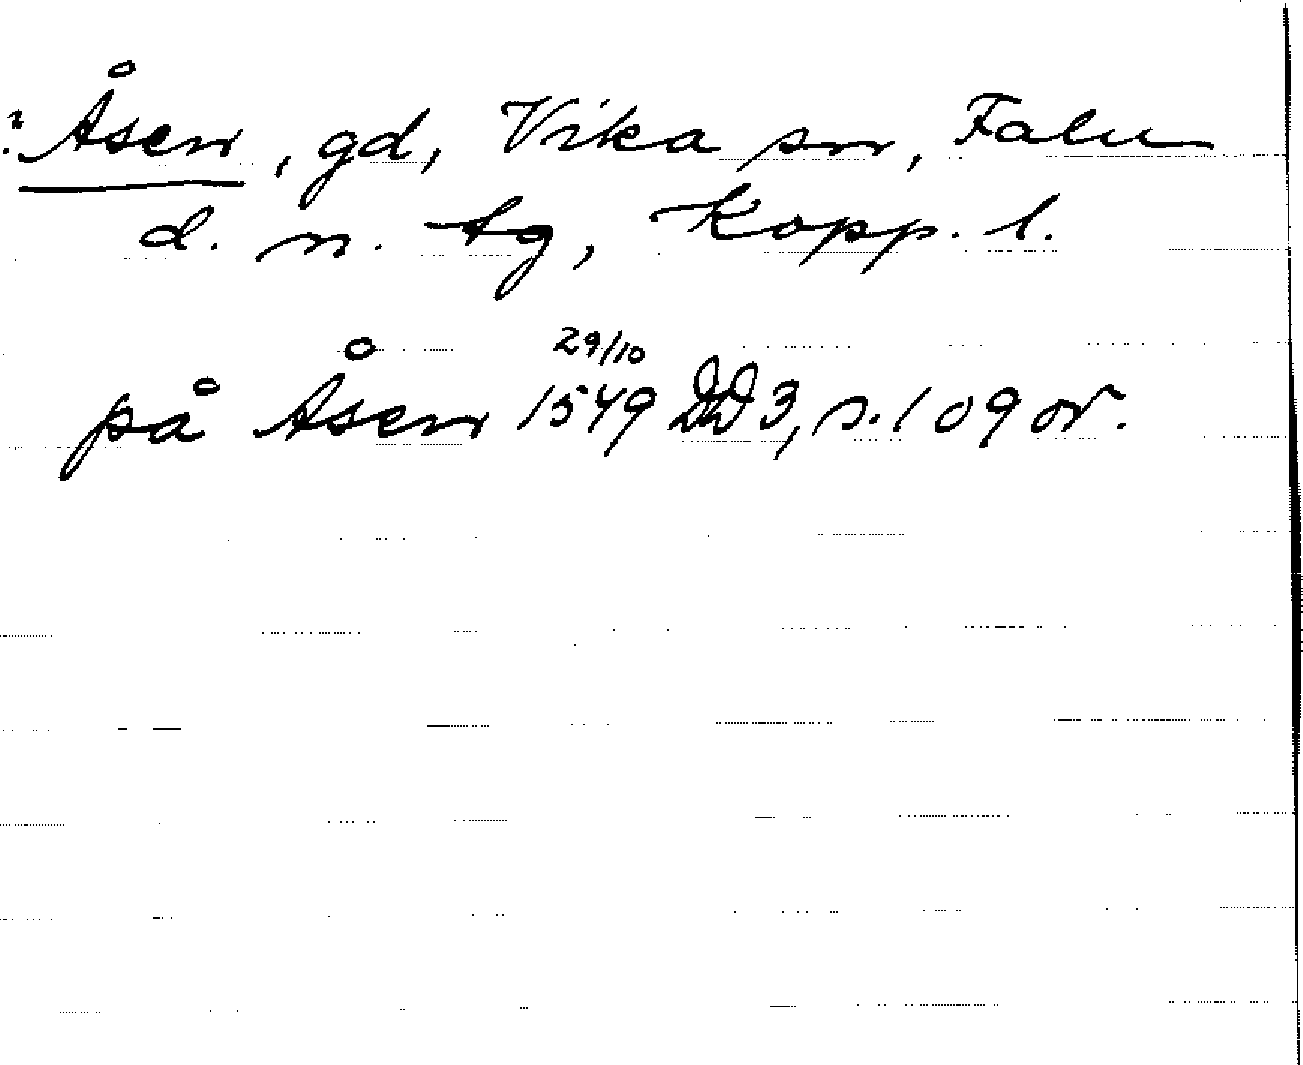 ? Åsen, gd, Vika sn, Falu
d. n. tg, Kopp. l.
29/10
på Åsen 1549 DD 3, s. 109 or.